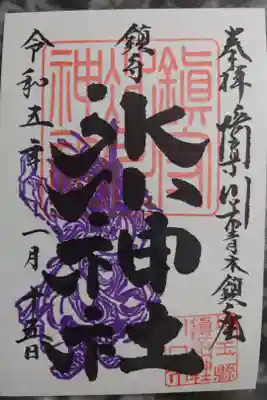 奉拝 埼玉県川口市青木鎮座
鎮守
氷川神社
令和五年 一月十五日
鎮守
氷川
神社
埼玉縣